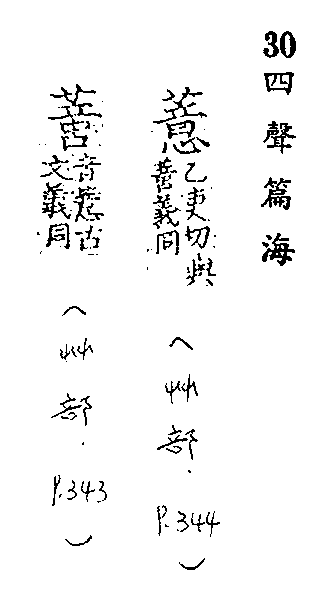 30四聲篇海
薏乙吏切與䓤義同（艸部．P.344）
音薏古文義同（艸部．P.343）